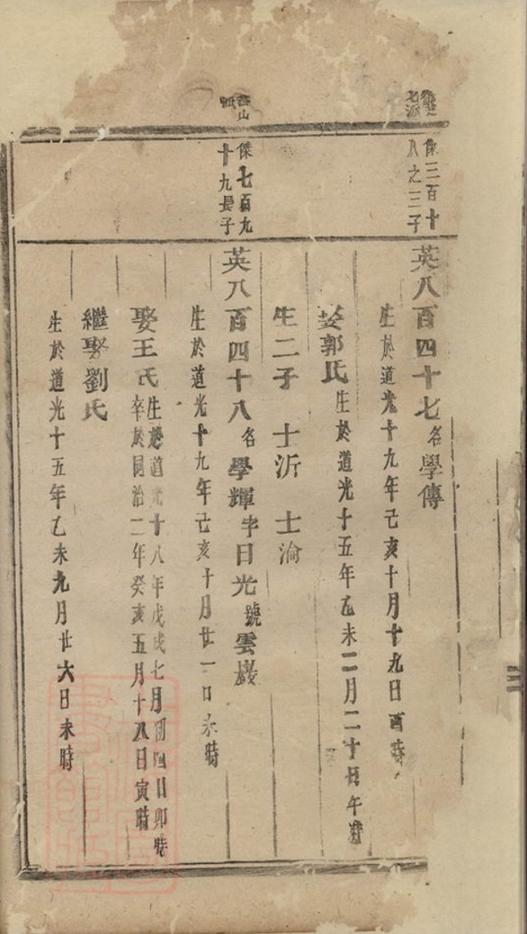 傑三百十
八之三子
英八百四十七名學傳
生於道光十九年己亥十月十九日酉時
娶郭氏生於道光十五年乙未二月二十日午時
生二子 士沂 士淪
傑七百九
十九長子
英八百四十八名學輝字日光號雲巖
生於道光十九年己亥十月廿一日未時
娶王氏生於道光十八年戊戌七月初四日卯時
卒於同治二年癸亥五月十八日寅時
繼娶劉氏
生於道光十五年乙未九月廿六日未時